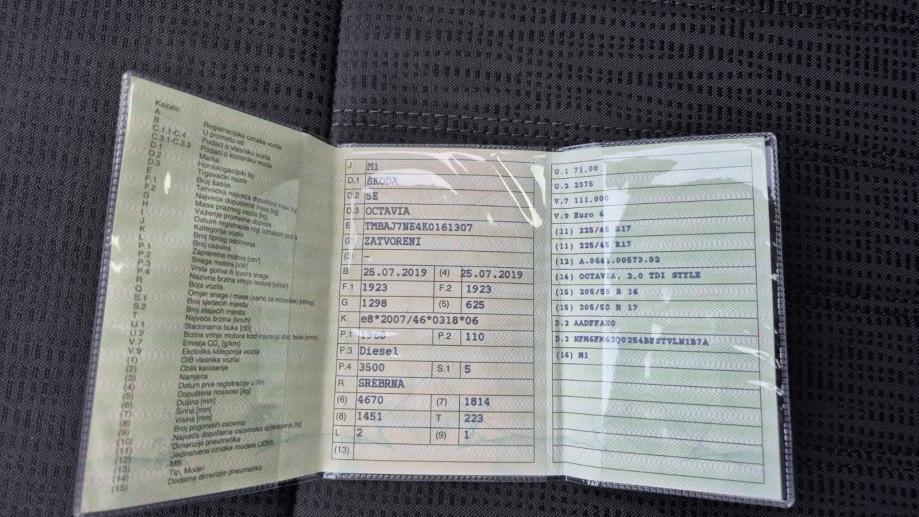 Kazalo:
A Registracijska oznaka vozila
B U prometu od
C.1.1-C.4 Podaci o vlasniku vozila
C.3.1-C.3.3 Podaci o korisniku vozila
D.1 Marka
D.2 Homologacijski tip
D.3 Trgovački naziv
E Broj šasije
F.1 Tehnička najveća dopuštena masa [kg]
F.2 Najveća dopuštena masa [kg]
G Masa praznog vozila [kg]
H Važenje prometne dozvole
I Datum registracije reg. oznakom pod A
J Kategorija vozila
K Broj tipnog odobrenja
L Broj osovina
P.1 Zapremina motora [cm³]
P.2 Snaga motora [kW]
P.3 Vrsta goriva ili izvora snage
P.4 Nazivna brzina vrtnje motora [o/min]
R Boja vozila
Q Omjer snage i mase (samo za motocikle) [kW/kg]
S.1 Broj sjedećih mjesta
S.2 Broj stajaćih mjesta
T Najveća brzina [km/h]
U.1 Stacionarna buka [dB]
U.2 Brzina vrtnje motora kod mjerenja stac. buke [o/min]
V.7 Emisija CO₂ [g/km]
V.9 Ekološka kategorija vozila
(1) OIB vlasnika vozila
(2) Oblik karoserije
(3) Namjena
(4) Datum prve registracije u RH
(5) Dopuštena nosivost [kg]
(6) Duljina [mm]
(7) Širina [mm]
(8) Visina [mm]
(9) Broj pogonskih osovina
(10) Najveća dopuštena osovinska opterećenja [kg]
(11) Dimenzije pneumatika
(12) Jedinstvena oznaka modela (JOM)
(13) MB
(14) Tip, Model
(15) Dodatne dimenzije pneumatika
J M1
D.1 ŠKODA
D.2 5E
D.3 OCTAVIA
E TMBAJ7NE4K0161307
(2) ZATVORENI
(3) –
B 25.07.2019 (4) 25.07.2019
F.1 1923 F.2 1923
G 1298 (5) 625
K e8*2007/46*0318*06
P.1 1968 P.2 110
P.3 Diesel
P.4 3500 S.1 5
R SREBRNA
(6) 4670 (7) 1814
(8) 1451 T 223
L 2 (9) 1
(13)
U.1 71.00
U.2 2375
V.7 111.000
V.9 Euro 6
(11) 225/45 R17
(11) 225/45 R17
(12) A.0641.00573.02
(14) OCTAVIA, 2,0 TDI STYLE
(15) 205/55 R 16
(15) 205/50 R 17
D.2 AADFFAX0
D.2 NFM6FM62Q0254BFSTVLN1B7A
(16) M1